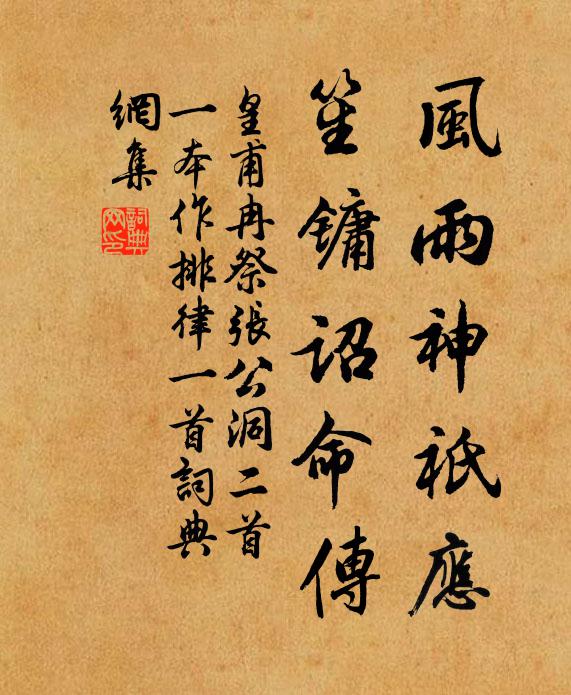 風雨神祇應
笙鏞詔命傳
皇甫冉祭張公洞二首
一本作排律一首詞典
網集
詞典
网印